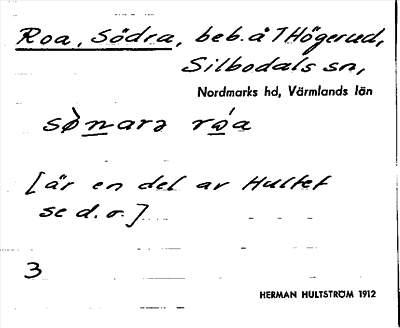 Roa, Södra, beb. å 1 Högerud,
Silbodals sn,
Nordmarks hd, Värmlands län
sø̀narə rǿa
[är en del av Hultet
se d. o.]
3
HERMAN HULTSTRÖM 1912